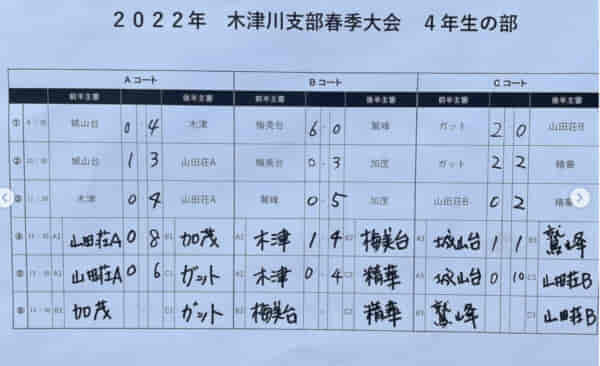 2022年 木津川支部春季大会 4年生の部
Aコート Bコート Cコート
前半主審 後半主審 前半主審 後半主審 前半主審 後半主審
① 城山台 0 - 4 木津 梅美台 6 - 0 鷲峰 ガット 2 - 0 山田荘B
② 城山台 1 3 山田荘A 梅美台 0 - 3 加茂 ガット 2 2 精華
③ 木津 0 4 山田荘A 鷲峰 0 - 5 加茂 山田荘B 0 2 精華
④ A1 山田荘A 0 8 B1 加茂 A2 木津 1 4 B2 梅美台 A3 城山台 1 1 B3 鷲峰
⑤ A1 山田荘A 0 6 C1 ガット A2 木津 0 4 C2 精華 A3 城山台 0 10 C3 山田荘B
⑥ B1 加茂 C1 ガット B2 梅美台 C2 精華 B3 鷲峰 C3 山田荘B